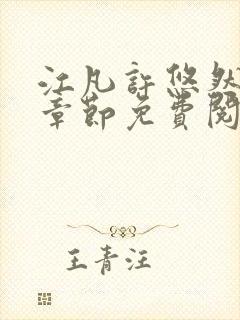 江凡許悠然
章節免費閱
王青汪